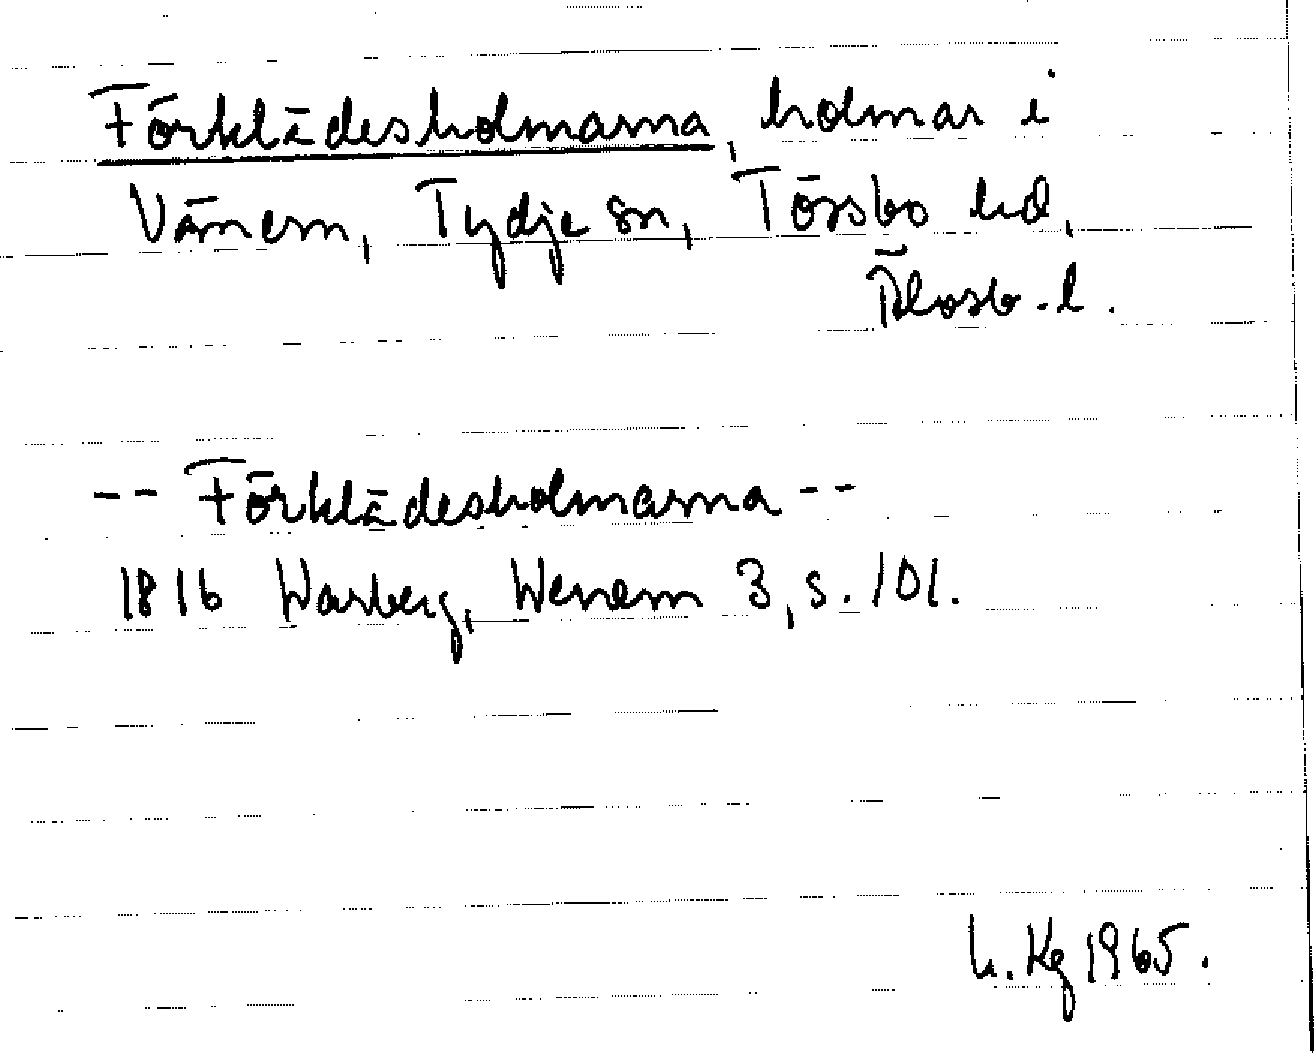 Förklädesholmarna, holmar i
Vänern, Tydje sn, Tössbo hd,
Älvsb. l.
-- Förklädesholmarna --
1816 Warberg, Wenern 3, s. 101.
h. Kg 1965.